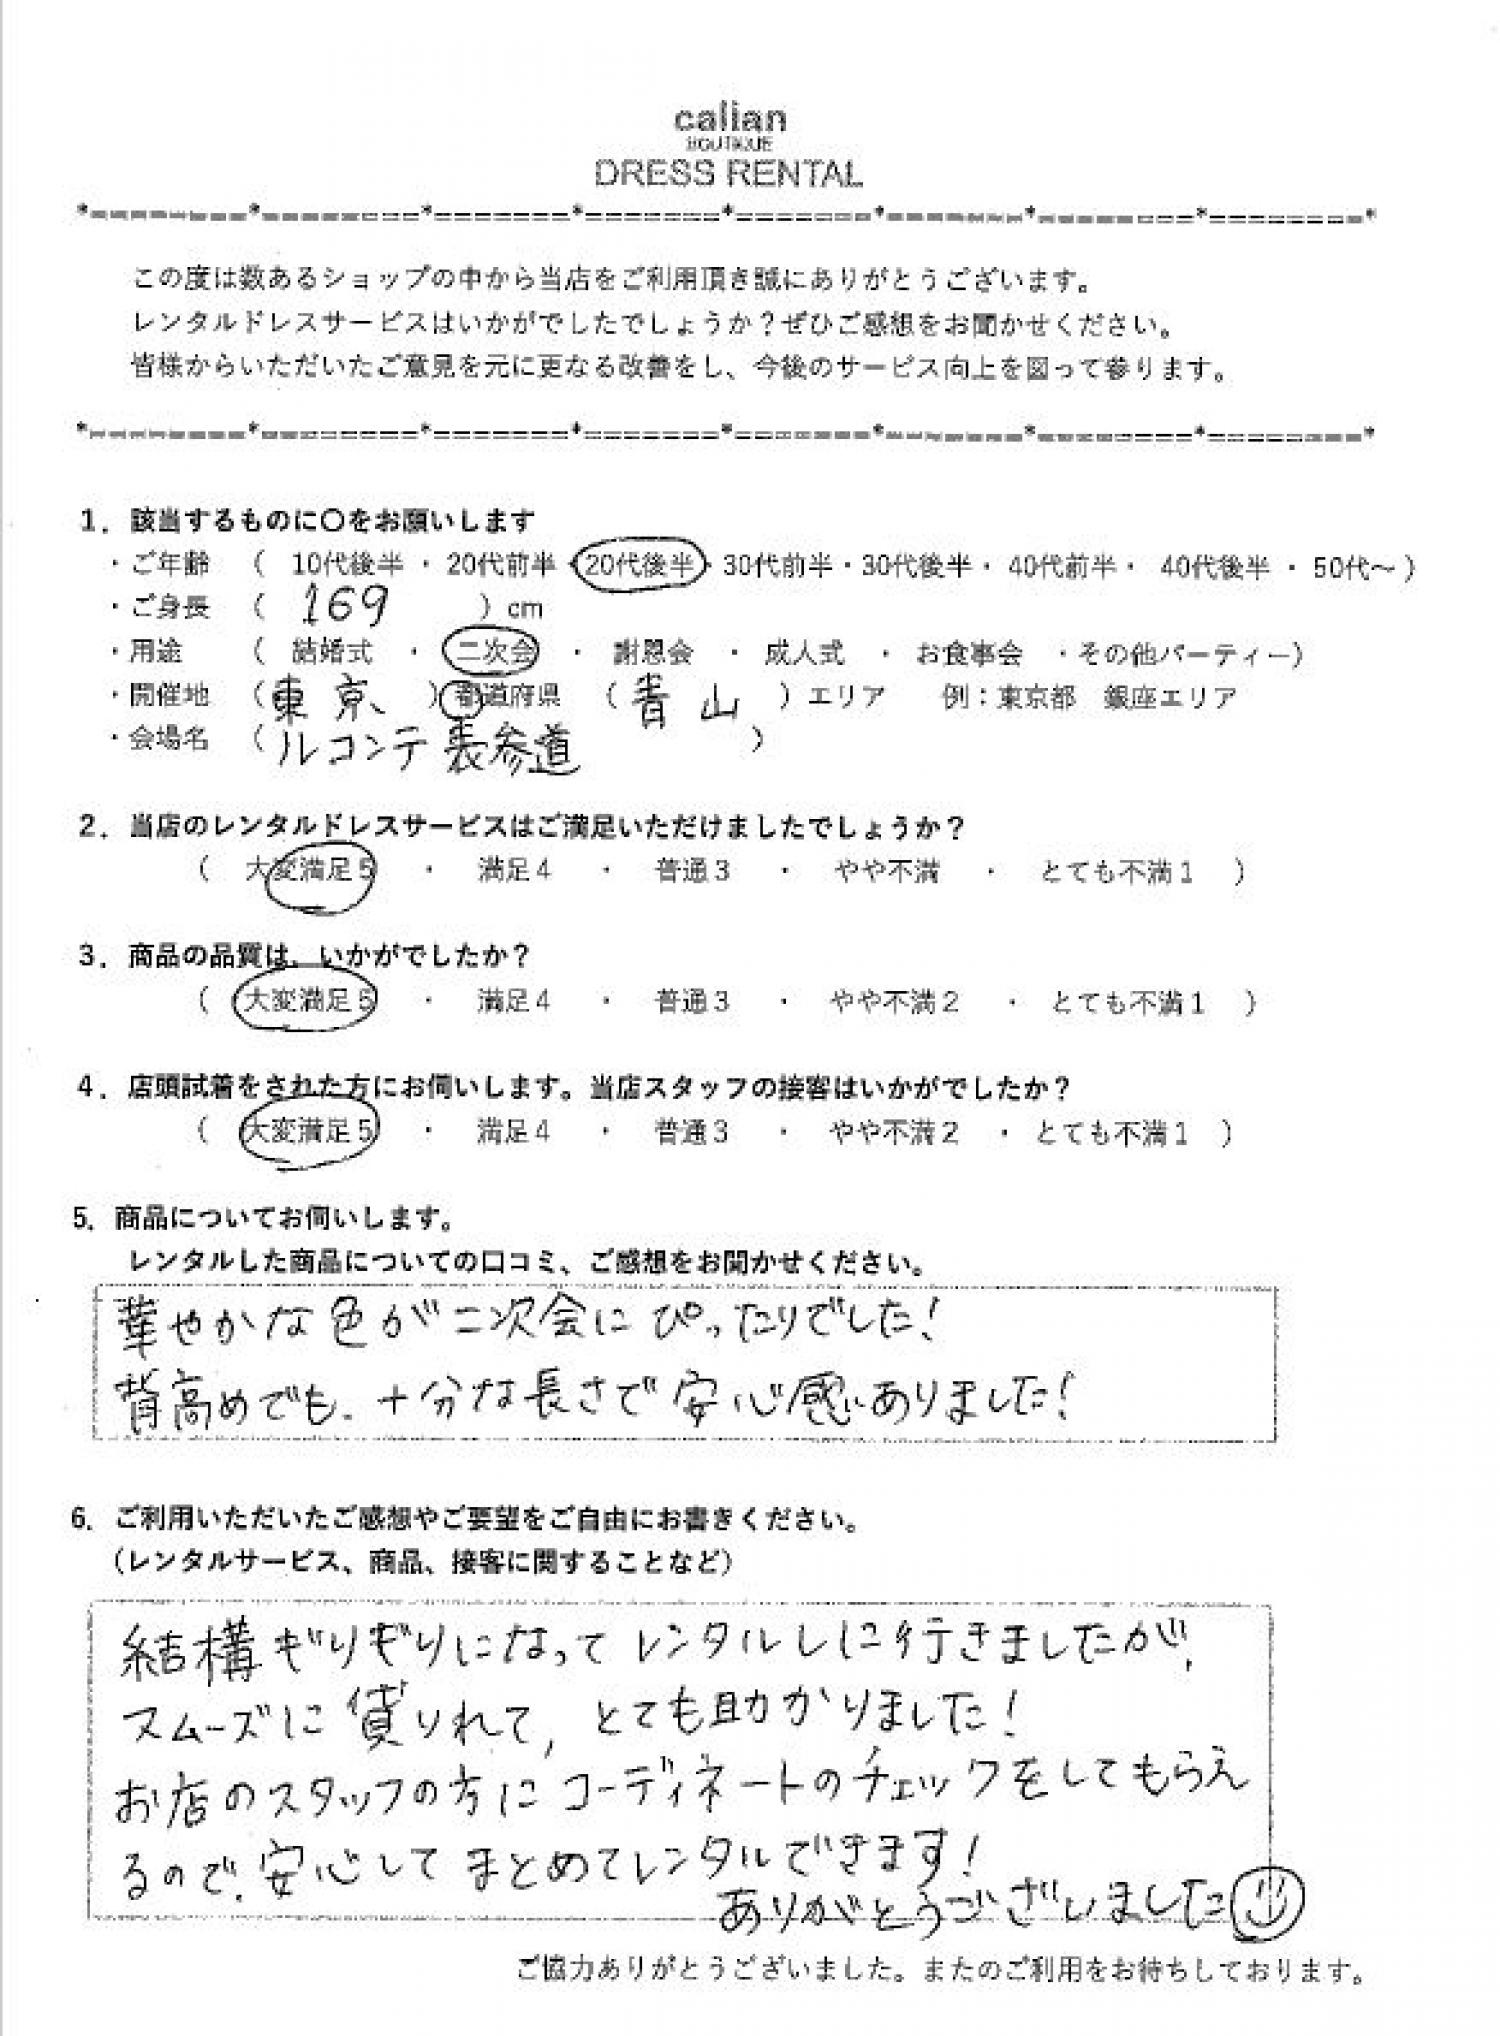 calian
BOUTIQUE
DRESS RENTAL
*--------*========*=======*=======*=======*-------*========*========*
この度は数あるショップの中から当店をご利用頂き誠にありがとうございます。
レンタルドレスサービスはいかがでしたでしょうか？ぜひご感想をお聞かせください。
皆様からいただいたご意見を元に更なる改善をし、今後のサービス向上を図って参ります。
*--------*========*=======*=======*=======*-------*========*========*
1．該当するものに〇をお願いします
・ご年齢 （ 10代後半 ・ 20代前半 ・20代後半・ 30代前半・30代後半・ 40代前半・ 40代後半 ・ 50代～ ）
・ご身長 （ 169 ）cm
・用途 （ 結婚式 ・ 二次会 ・ 謝恩会 ・ 成人式 ・ お食事会 ・その他パーティー）
・開催地 （東京 ）都道府県 （ 青山 ）エリア 例：東京都 銀座エリア
・会場名 （ルコンテ表参道 ）
2．当店のレンタルドレスサービスはご満足いただけましたでしょうか？
（ 大変満足5 ・ 満足4 ・ 普通3 ・ やや不満 ・ とても不満1 ）
3．商品の品質は、いかがでしたか？
（ 大変満足5 ・ 満足4 ・ 普通3 ・ やや不満2 ・ とても不満1 ）
4．店頭試着をされた方にお伺いします。当店スタッフの接客はいかがでしたか？
（ 大変満足5 ・ 満足4 ・ 普通3 ・ やや不満2 ・ とても不満1 ）
5．商品についてお伺いします。
レンタルした商品についての口コミ、ご感想をお聞かせください。
華やかな色が二次会にぴったりでした！
背高めでも、十分な長さで安心感ありました！
6．ご利用いただいたご感想やご要望をご自由にお書きください。
（レンタルサービス、商品、接客に関することなど）
結構ぎりぎりになってレンタルしに行きましたが、
スムーズに借りれて、とても助かりました！
お店のスタッフの方にコーディネートのチェックをしてもらえ
るので、安心してまとめてレンタルできます！
ありがとうございました
ご協力ありがとうございました。またのご利用をお待ちしております。